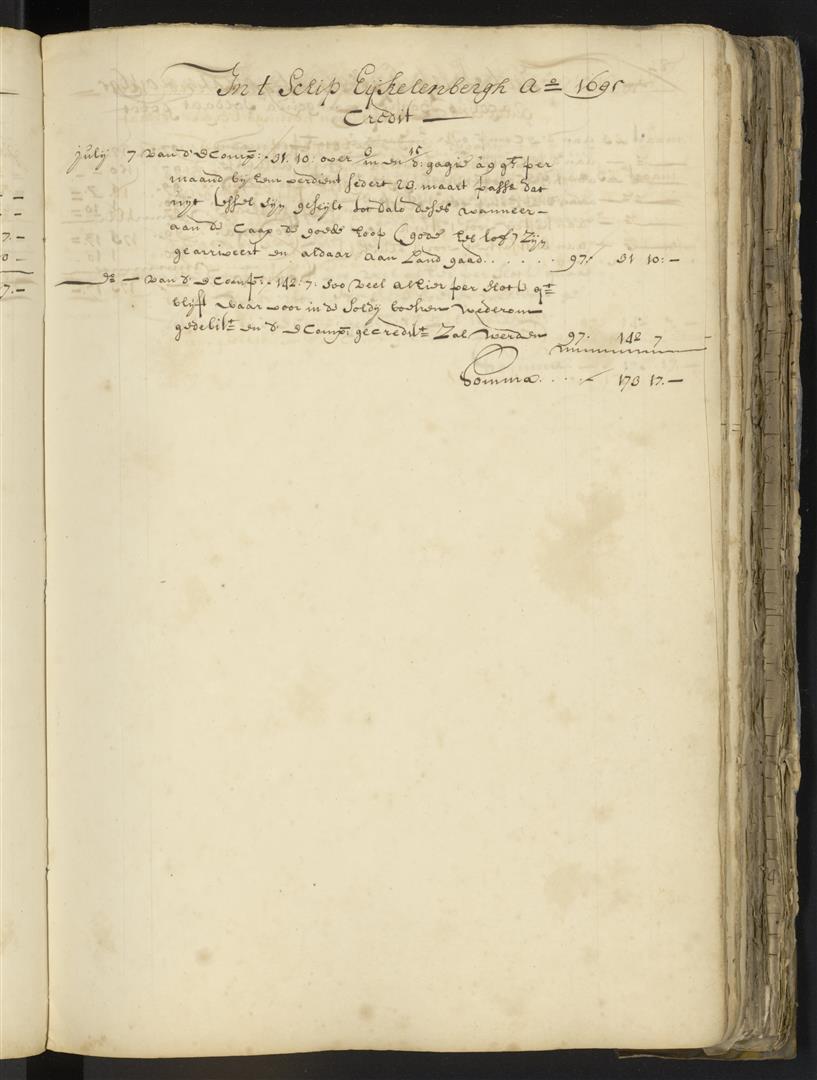 In t Schip Eijkelenbergh Aº 1695
Credit
7.
0
7.
july 7 van d' E Comp: ƒ 31. 10: over 3 m en 15 d: gagie à 9 gl per
maand bij hem verdient sedert 23. maart passo dat
uijt Tessel sijn geseijlt tot dato deses wanneer
aan de Caap de goede hoop (gode heb lof) zijn
gearriveert en aldaar aan Land gaad . . . . . . 97. ƒ 31 10: —
dº — van d' E Comp: ƒ 142. 7: soo veel alhier per slot te qt
blijft waar voor in de soldij boeken wederom
gedebitt en d' E Comp: gecreditt zal werden 97. 142 7 -
Somma . . . ƒ 173 17. —